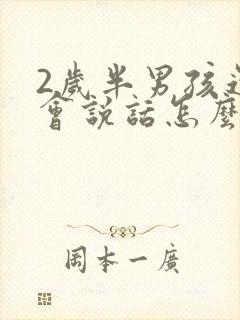 2歲半男孩
會說話怎麼
岡本一廣